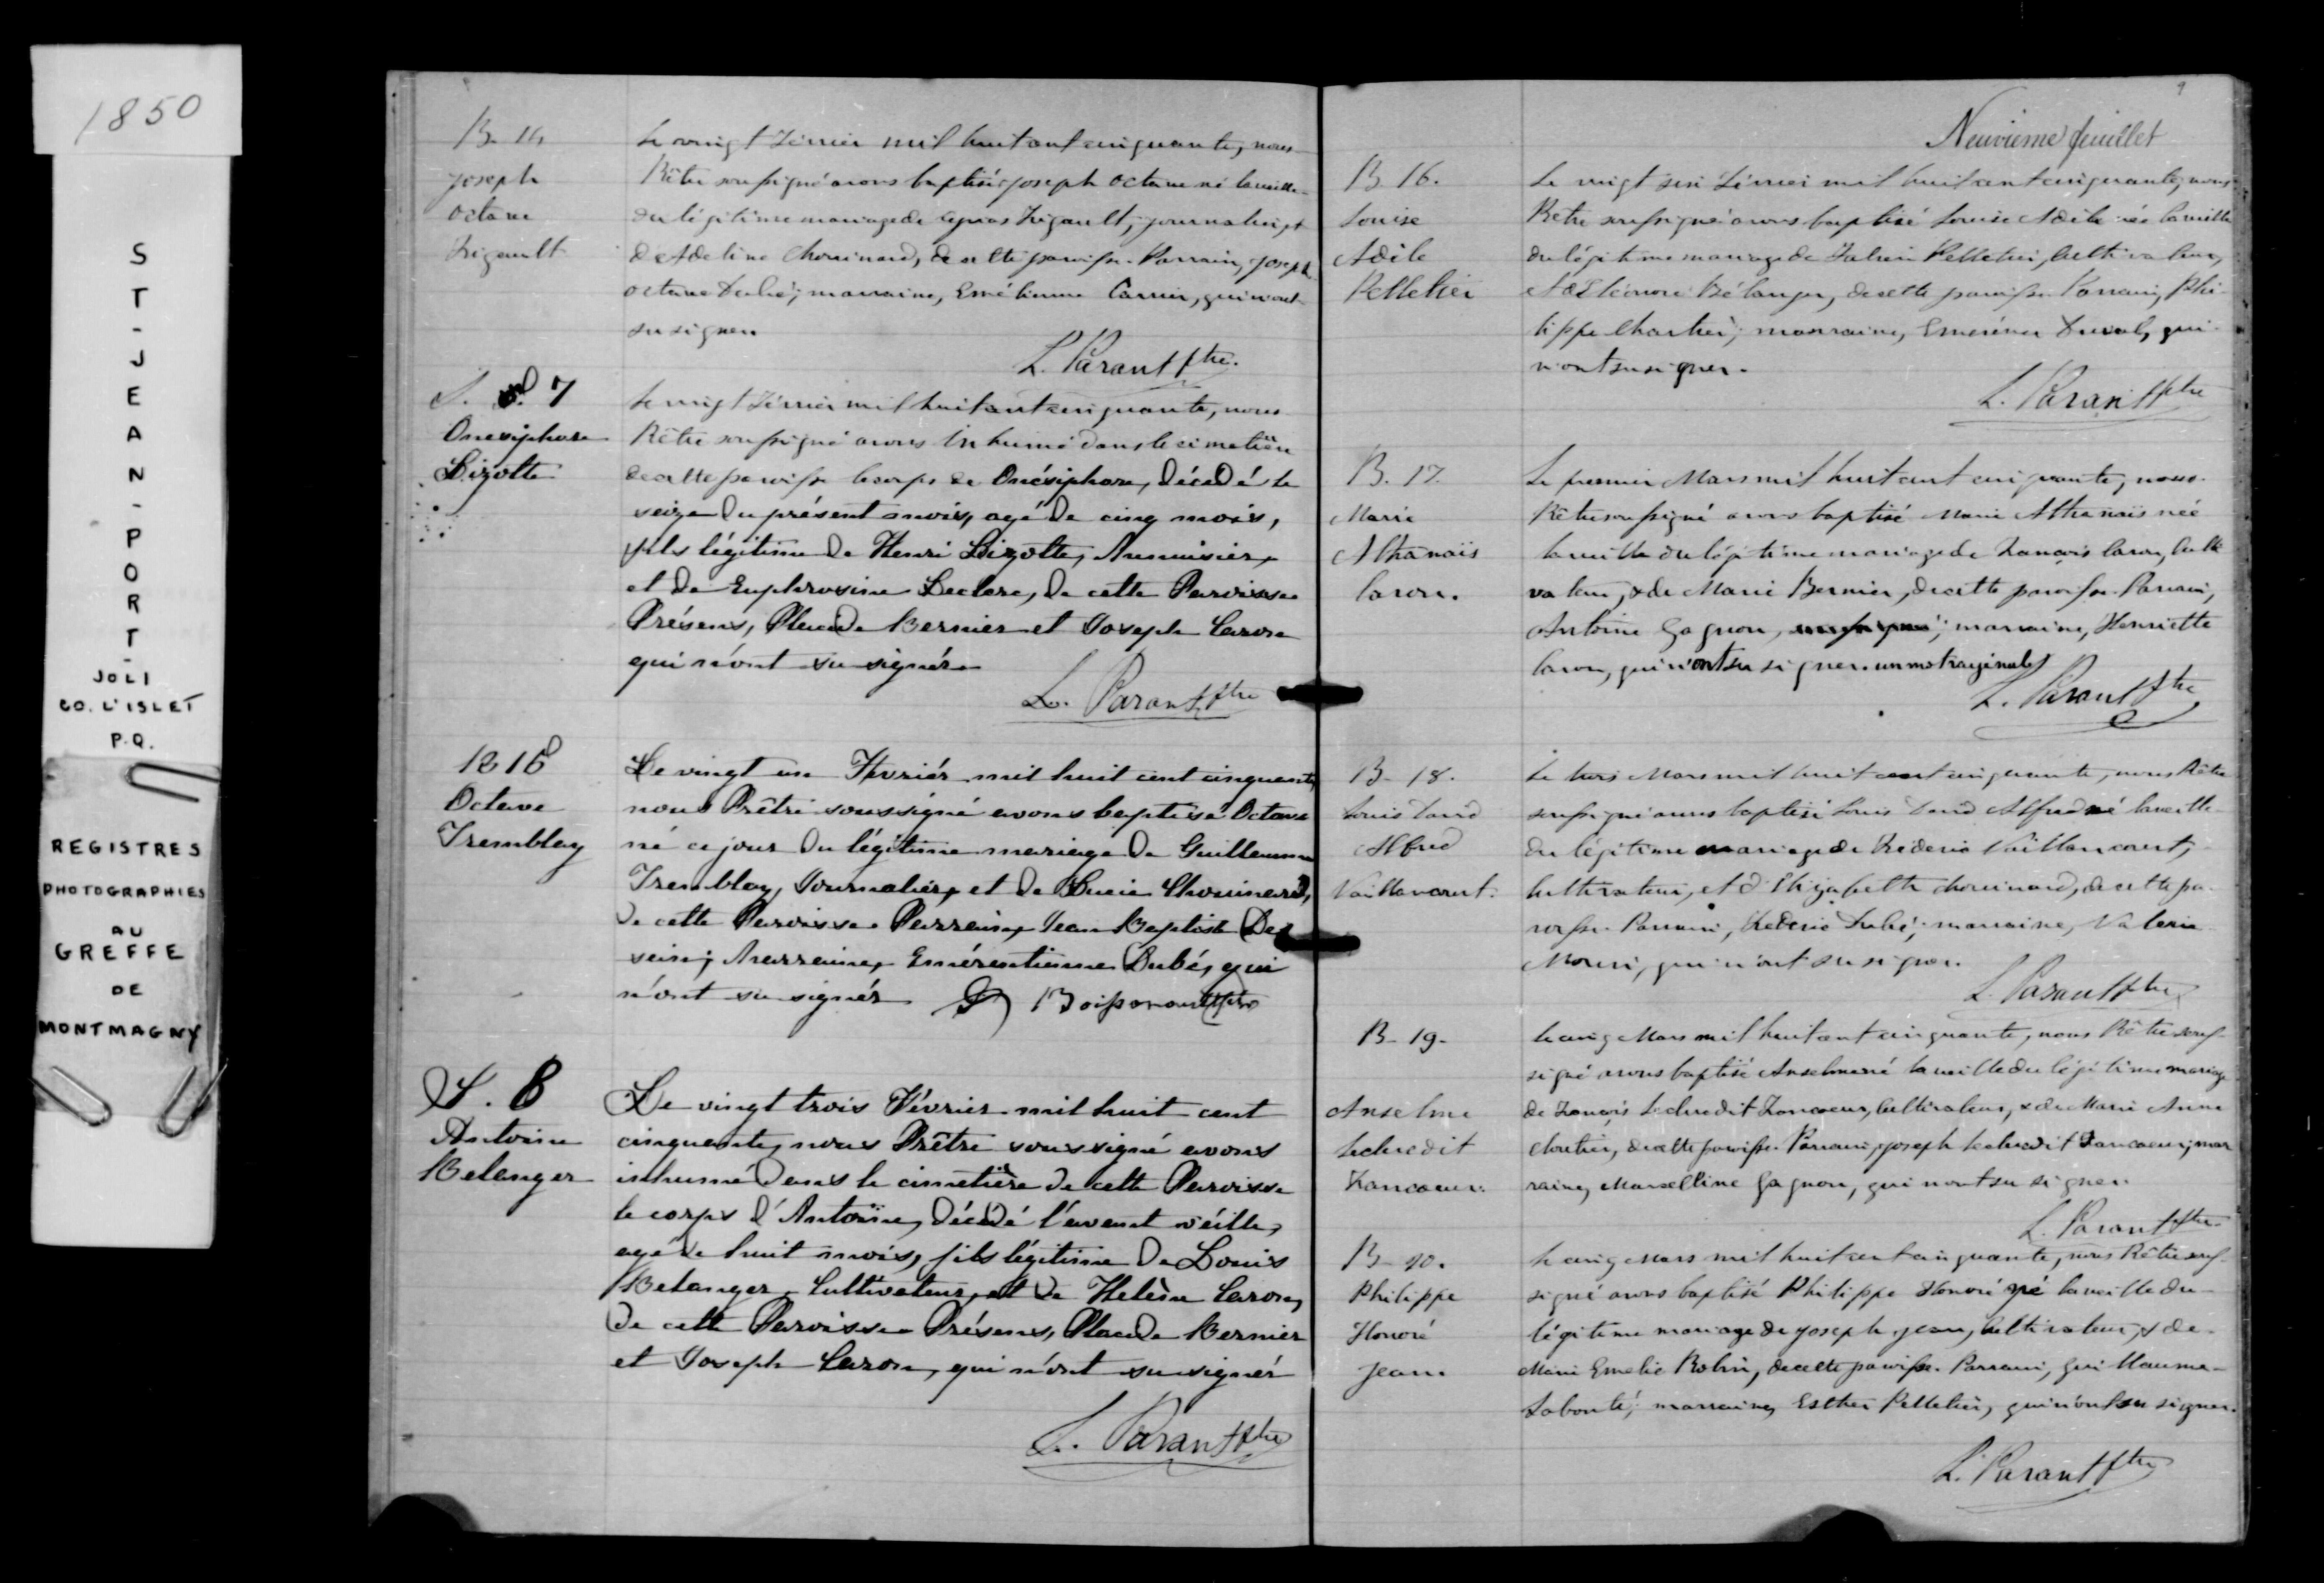 1850
ST-JEAN-PORT-
JOLI
CO. L'ISLET
P.Q.
REGISTRES
PHOTOGRAPHIES
AU
GREFFE
DE
MONTMAGNY
B. 14
Joseph
Octave
Le vingt Février mil huit cent cinquante, nous
Prêtre soussigné avons baptisé Joseph Octave né la veille
du légitime mariage de journalier, et
d'Adeline Chouinard, de cette paroisse. Parrain, Joseph
Octave Dubé; marraine, Carrier, qui n'ont
su signer
L. Parant Ptre.
S. 7
Onesiphore
Lizotte
Le vingt Février mil huit cent cinquante, nous
Prêtre soussigné avons inhumé dans le cimetière
de cette paroisse le corps de Onésiphore, décédé le
seize du présent mois, agé de cinq mois,
fils légitime de Henri Lizotte, Menuisier,
et de Euphrosine Leclerc, de cette Paroisse
Présens, Placide Bernier et Joseph Caron
qui n'ont su signér
L. Parant Ptre
B 15
Octave
Tremblay
Le vingt un Fevriér mil huit cent cinquante
nous Prêtre soussigné avons baptisé Octave
né ce jour du légitime mariage de Guillaume
Tremblay, Journaliér, et de Lucie Chouinard,
de cette Paroisse. Parrain, Jean Baptiste
Marraine, Emérentienne Dubé, qui
n'ont su signér Boissonnault Ptre
S. 8
Antoine
Belanger
Le vingt trois Février mil huit cent
cinquante, nous Prêtre soussigné avons
inhumé dans le cimetière de cette Paroisse
le corps d'Antoine, décédé l'avant véille,
agé de huit mois, fils légitime de Louis
Belanger, Cultivateur, et de Helène Caron,
de cette Paroisse Présens, Placide Bernier
et Joseph Caron, qui n'ont su signér
L. Parant Ptre
9
Neuvième feuillet
B 16.
Louise
Adèle
Pelletier
Le vingt six Février mil huit cent cinquante, nous
Prêtre soussigné avons baptisé Louise Adèle née la veille
du légitime mariage de Pelletier, Cultivateur,
& d'Eléonore Bélanger, de cette paroisse. Parrain, Phi-
lippe marraine, Duval, qui
n'ont su signer.
L. Parant Ptre
B. 17.
Marie
Athanaïs
Caron.
Le premier Mars mil huit cent cinquante, nous
Prêtre soussigné avons baptisé Marie Athanaïs née
la veille du légitime mariage de François Caron, Culti
vateur, & de Marie Bernier, de cette paroisse. Parrain,
Antoine Gagnon, marraine, Henriette
Caron, qui n'ont su signer.
L. Parant Ptre
B. 18.
Louis David
Alfred
Vaillancourt.
Le trois Mars mil huit cent cinquante, nous Prêtre
soussigné avons baptisé Louis David Alfred né la veille
du légitime mariage de Fréderic Vaillancourt,
Cultivateur, et d'Elizabeth Chouinard, de cette pa-
roisse. Parrain, Fréderic Dubé; marraine, Valerie
Morin, qui n'ont su signer.
L. Parant Ptre
B. 19.
Anselme
Leclerc dit
Francoeur.
Le cinq Mars mil huit cent cinquante, nous Prêtre sous-
signé avons baptisé Anselme né la veille du légitime mariage
de François Leclerc dit Francoeur, Cultivateur, & de Marie Anne
Cloutier, de cette paroisse. Parrain, Joseph Leclerc dit Francoeur; mar
raine, Marcelline Gagnon, qui n'ont su signer.
L. Parant Ptre
B. 20.
Philippe
Honoré
Jean.
Le cinq Mars mil huit cent cinquante, nous Prêtre sous-
signé avons baptisé Philippe Honoré né la veille du
légitime mariage de Joseph Jean, Cultivateur, & de
Marie Emelie Robin, de cette paroisse. Parrain, Guillaume
Labonté; marraine, Esther Pelletier, qui n'ont su signer.
L. Parant Ptre